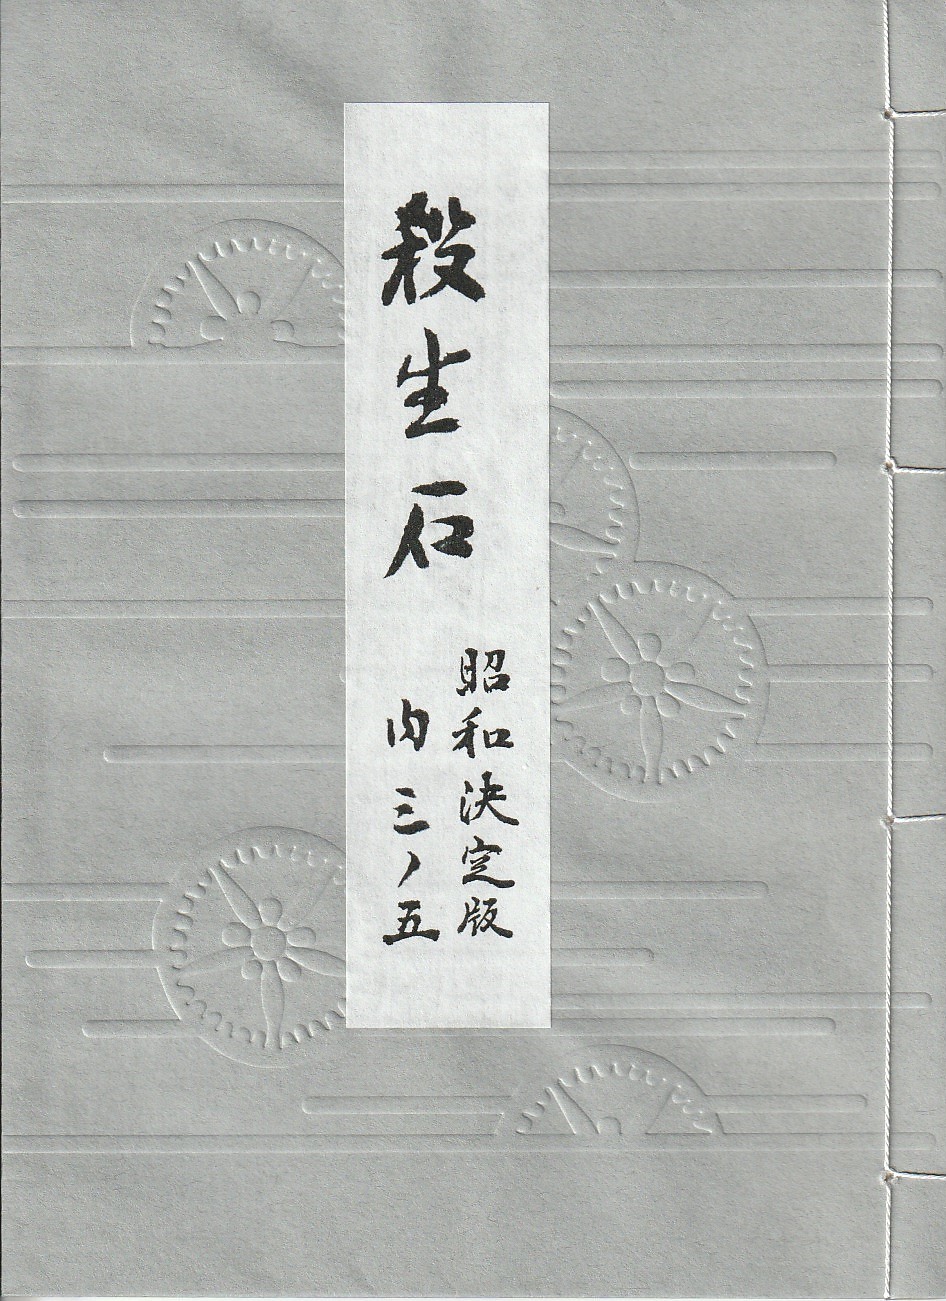 殺生石
昭和決定版
内三ノ五